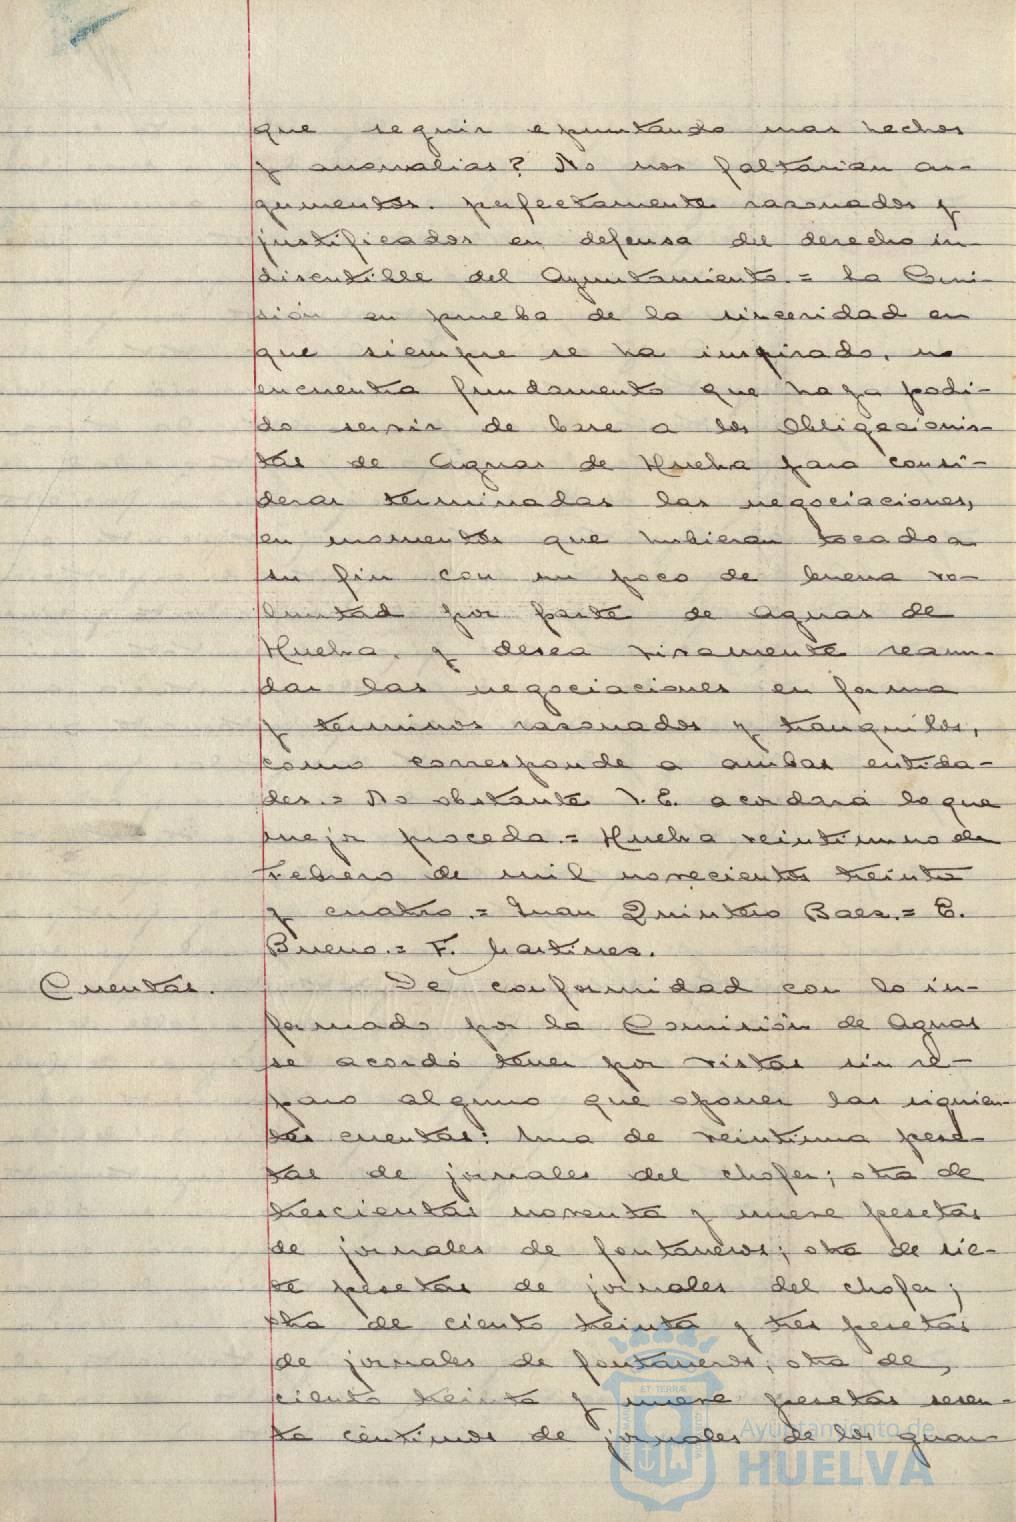 que seguir apuntando mas hechos
y anomalias? No nos faltarian ar-
gumentos perfectamente razonados y
justificados en defensa del derecho in-
discutible del Ayuntamiento.= La Comi-
sión en prueba de la sinceridad en
que siempre se ha inspirado, no
encuentra fundamento que haya podi-
do servir de base a los Obligacionis-
tas de Aguas de Huelva para consi-
derar terminadas las negociaciones,
en momentos que hubieran tocado a
su fin con un poco de buena vo-
luntad por parte de Aguas de
Huelva, y desea vivamente reanu-
dar las negociaciones en forma
y terminos razonados y tranquilos,
como corresponde a ambas entida-
des.= No obstante V.E. acordará lo que
mejor proceda.= Huelva veintiuno de
Febrero de mil novecientos treinta
y cuatro.= Juan Quintero Baez.= E.
Bueno.= F. Martinez.
Cuentas. De conformidad con lo in-
formado por la Comisión de Aguas
se acordó tener por vistas sin re-
paro alguno que oponer las siguien-
tes cuentas: Una de veintiuna pese-
tas de jornales del chofer; otra de
trescientas noventa y nueve pesetas
de jornales de fontaneros; otra de sie-
te pesetas de jornales del chofer;
otra de ciento treinta y tres pesetas
de jornales de fontaneros; otra de
ciento treinta y nueve pesetas sesen-
ta centimos de jornales de los guar-
ET TERRÆ
Ayuntamiento de
HUELVA